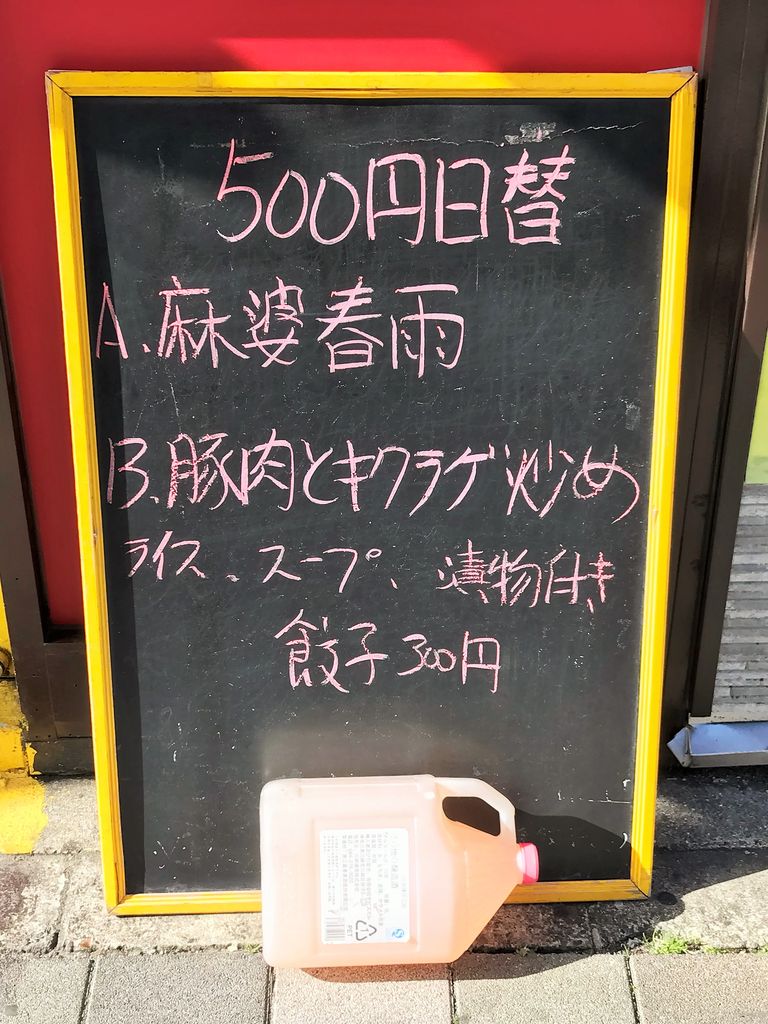 500円日替
A.麻婆春雨
B.豚肉とキクラゲ炒め
ライス、スープ、漬物付き
餃子300円